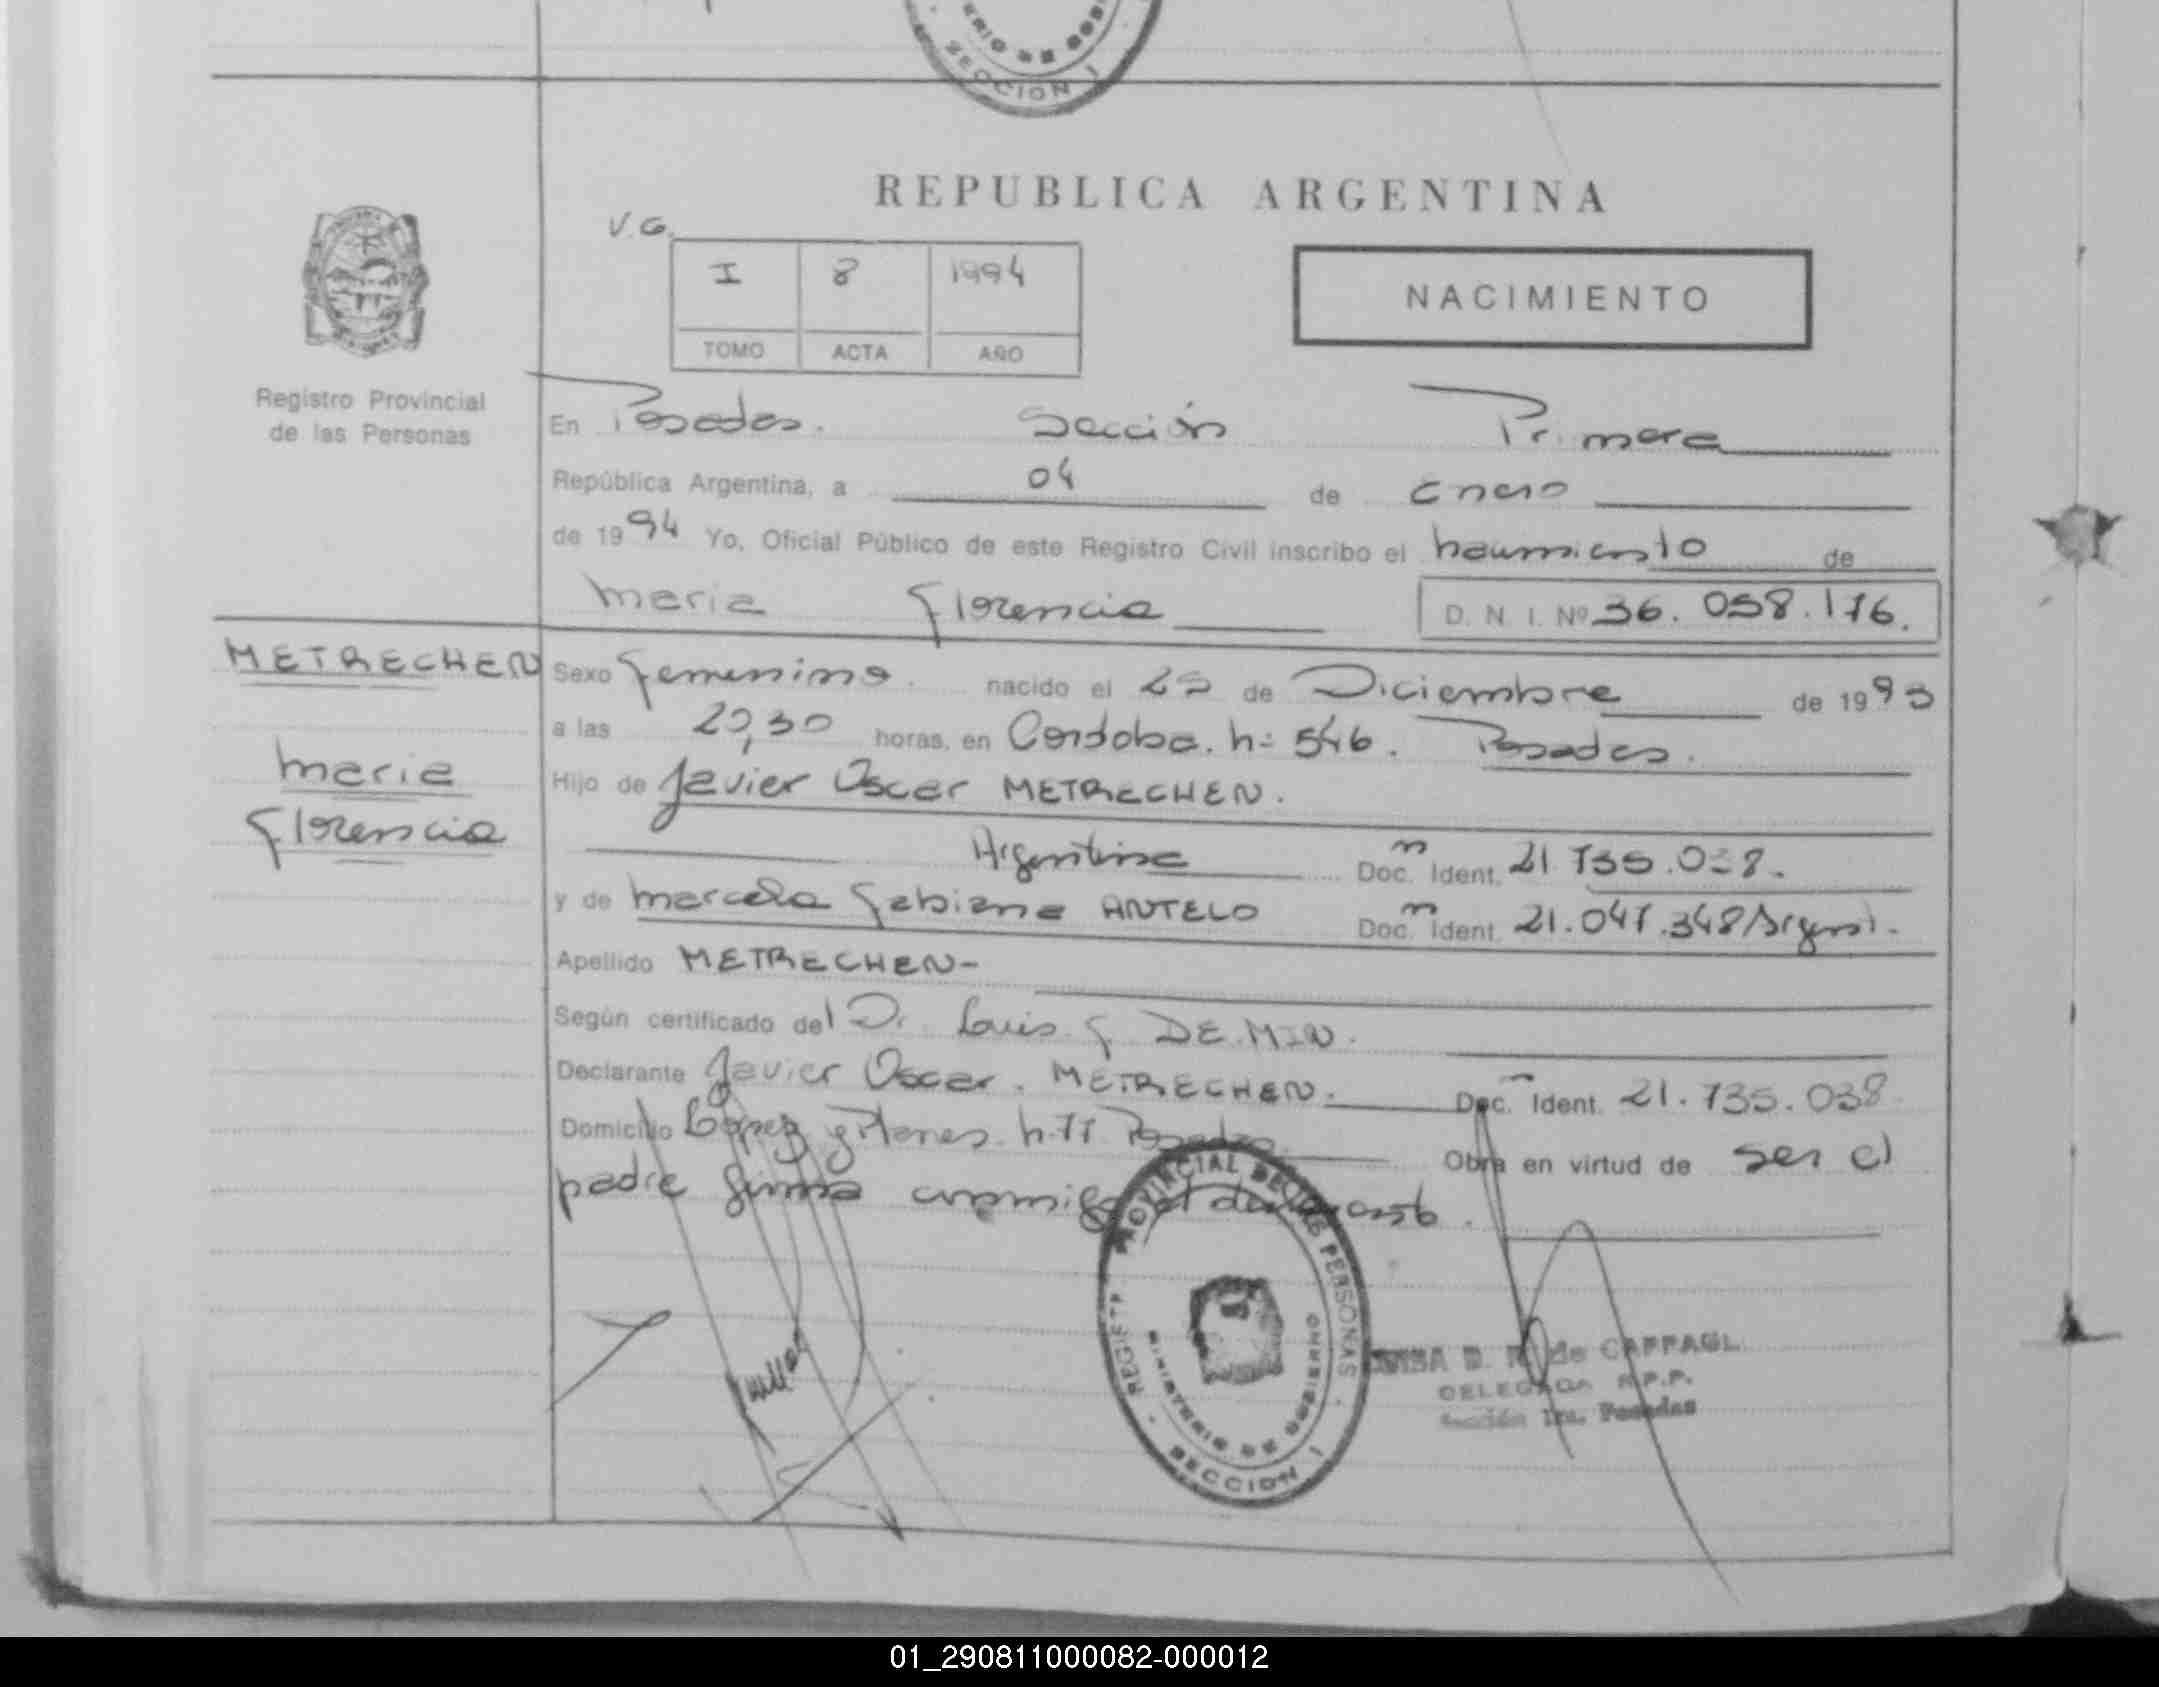 MINISTERIO DE GOBIERNO
SECCION I
REPUBLICA ARGENTINA
V.G.
I 8 1994
TOMO ACTA AÑO
NACIMIENTO
Registro Provincial
de las Personas
En Posadas. Sección Primera
República Argentina, a 04 de Enero
de 1994 Yo, Oficial Público de este Registro Civil inscribo el nacimiento de
Maria Florencia D. N. I. Nº 36.058.176.
METRECHEN
Maria
Florencia
Sexo Femenino. nacido el de Diciembre de 1993
a las 20,30 horas, en Cordoba. Nº 546. Posadas.
Hijo de Javier Oscar METRECHEN.
Argentina Doc. Ident. 21.735.038.
y de Marcela Fabiana ANTELO Doc. Ident. 21.047.348/Argent.
Apellido METRECHEN-
Según certificado del Dr. Luis F DE.MIN.
Declarante Javier Oscar. METRECHEN. Doc. Ident. 21.735.038
Domicilio López y Planes. Posadas Obra en virtud de ser el
padre firma conmigo el declarante.
REGISTRO PROVINCIAL DE LAS PERSONAS
MINISTERIO DE GOBIERNO
SECCION I
D. de
DELEGADA R.P.P.
Sección 1ra. Posadas
01_290811000082-000012